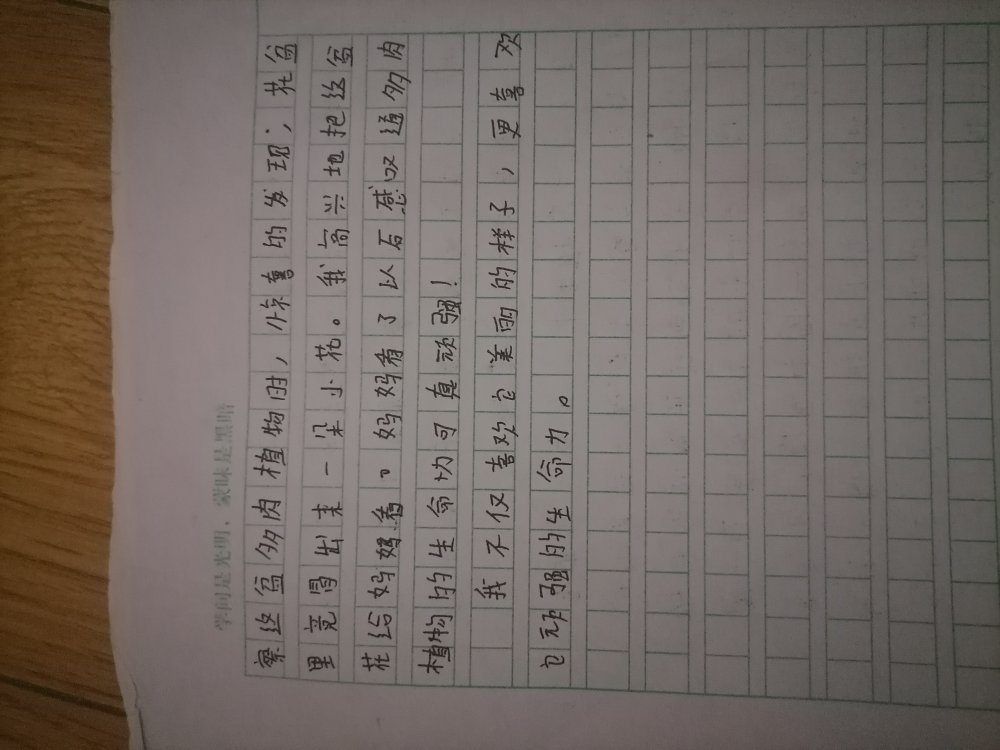 学问是光明，蒙昧是黑暗
察这盆多肉植物时，惊喜的发现，花盆
里竟冒出来一朵小花。我高兴地把这盆
花给妈妈看。妈妈看了以后感叹道多肉
植物的生命力可真顽强！
我不仅喜欢它美丽的样子，更喜欢
它顽强的生命力。